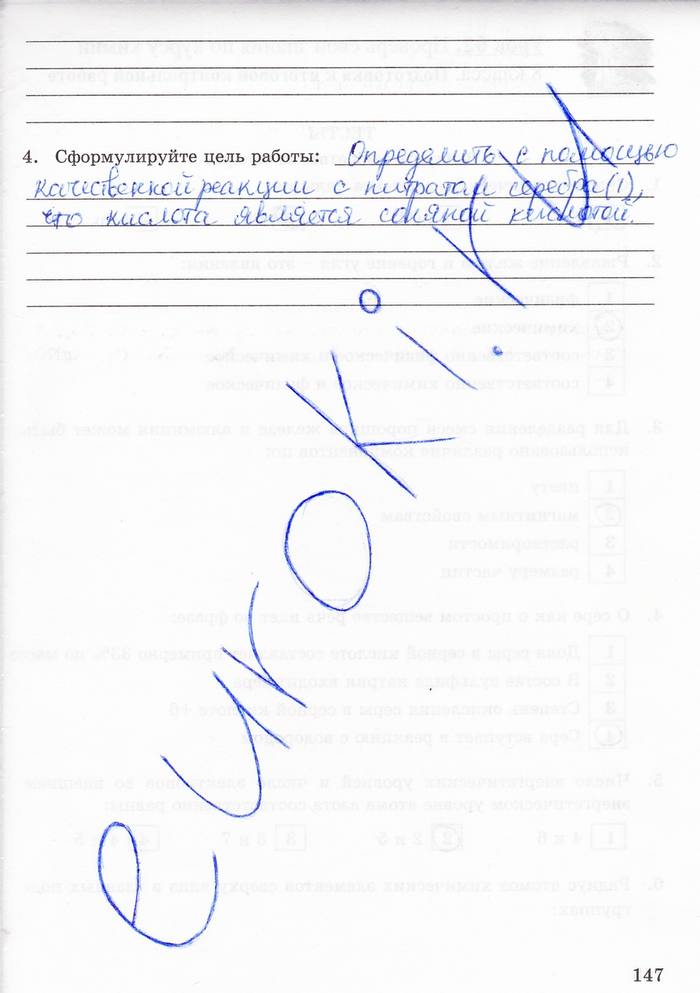 4. Сформулируйте цель работы: Определить с помощью
качественной реакции с нитратом серебра (I),
что кислота является соляной кислотой.
euroki.ru
147